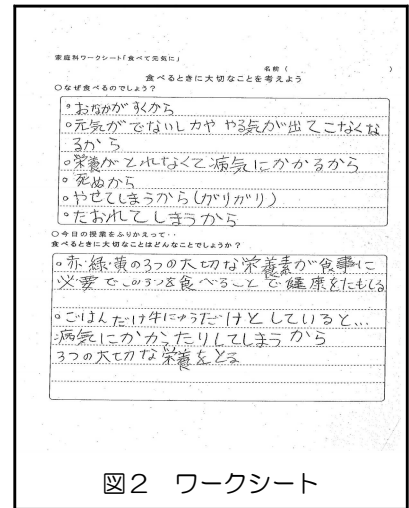 家庭科ワークシート「食べて元気に」
名前（　　　　　　　　　　）
食べるときに大切なことを考えよう
〇なぜ食べるのでしょう？
・おなかがすくから
・元気がでないし力や やる気が出てこなくな
るから
・栄養がとれなくて病気にかかるから
・死ぬから
・やせてしまうから(ガリガリ)
・たおれてしまうから
〇今日の授業をふりかえって・・
食べるときに大切なことはどんなことでしょうか？
・赤・緑・黄の3つの大切な栄養素が食事に
必要でこの3つを食べることで健康をたもてる
・ごはんだけ牛にゅうだけとしていると…
病気にかかったりしてしまうから
3つの大切な栄養をとる
図2　ワークシート